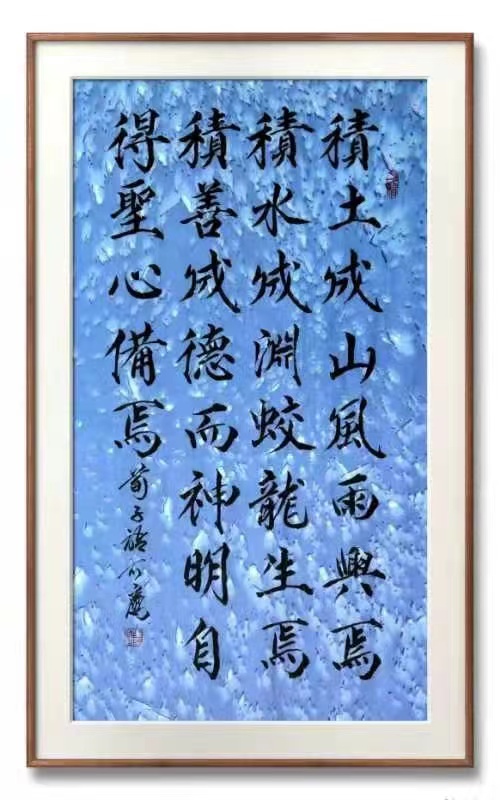 積土成山風雨興焉
積水成淵蛟龍生焉
積善成德而神明自
得聖心備焉
荀子語